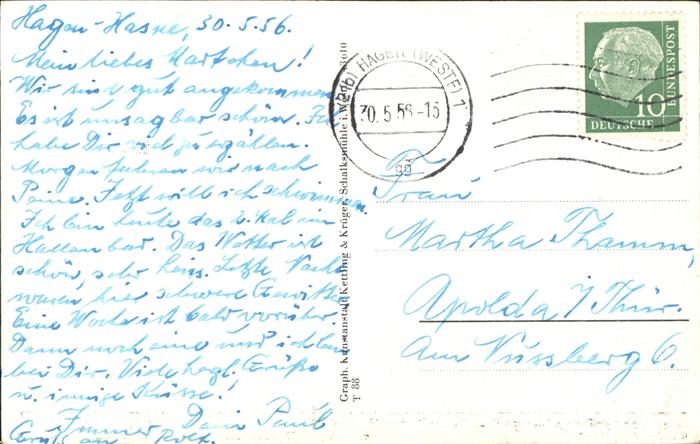 Hagen-Haspe, 30.5.56.
Mein liebes Martchen!
Wir sind gut angekommen.
Es ist unsagbar schön. Ich
habe Dir viel zu erzählen.
Morgen fahren wir nach
Peine. Jetzt will ich schwimmen.
Ich bin heute das 2. Mal im
Hallenbad. Das Wetter ist
schön, sehr heiss. Letzte Nacht
waren hier schwere Gewitter.
Eine Woche ist bald vorüber.
Dann noch eine und ich bin
bei Dir. Viele herzl. Grüße
u. innige Küsse!
Immer Dein Paul
Gruß an Rolf.
Graph. Kunstanstalt Kettling & Krüger, Schalksmühle i.
T 88
HAGEN (WESTF) 1
30.5.56-15
gd
10
DEUTSCHE
BUNDESPOST
Frau
Martha Thamm,
Apolda i/Thür.
Am Nussberg 6.